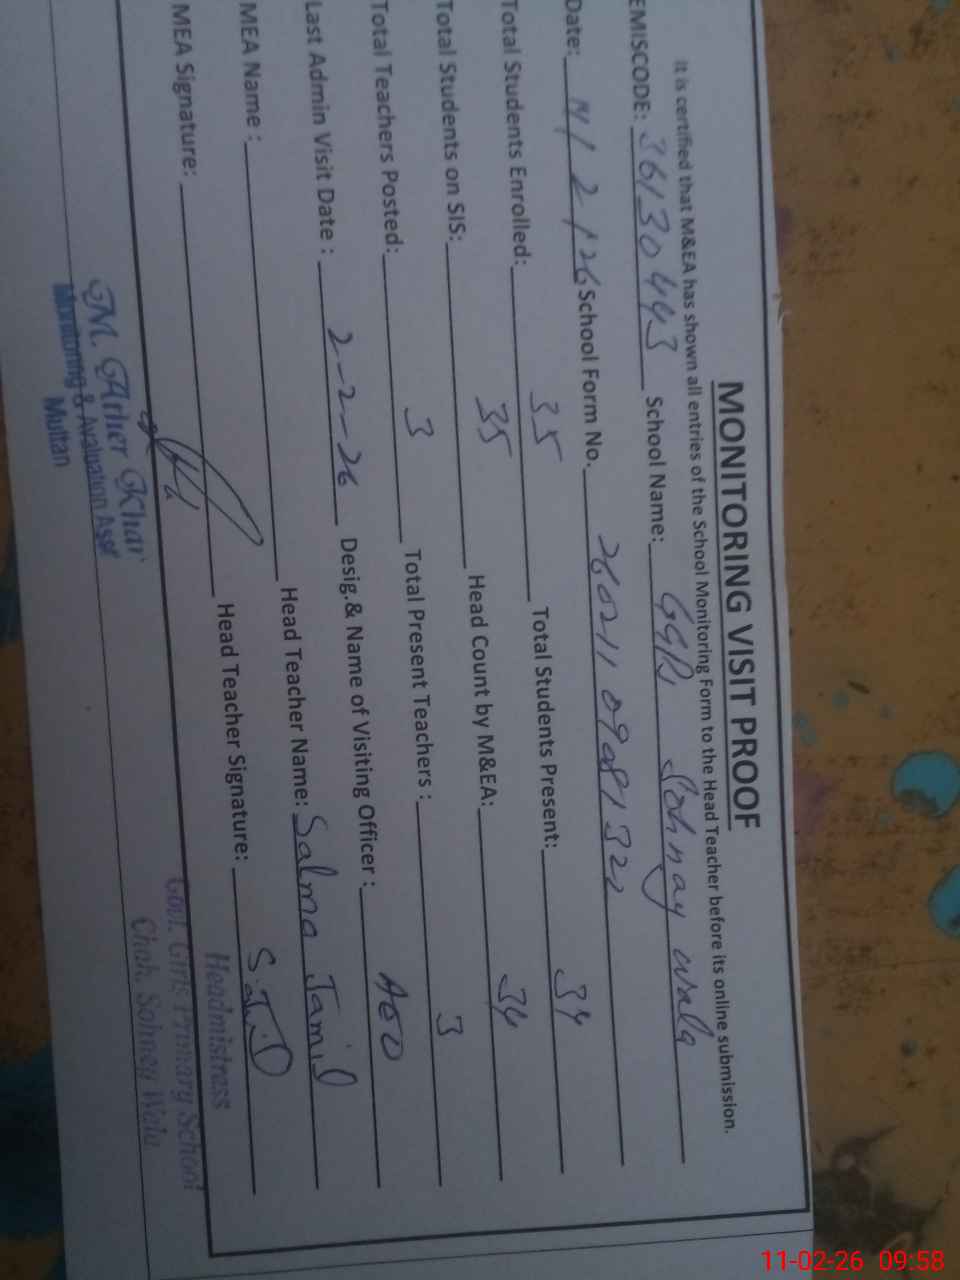 MONITORING VISIT PROOF
It is certified that M&EA has shown all entries of the School Monitoring Form to the Head Teacher before its online submission.
EMISCODE: 36130443 School Name: GGPS Sohnay wala
Date: 11/2/26 School Form No. 260211098132
Total Students Enrolled: 35 Total Students Present: 34
Total Students on SIS: 35 Head Count by M&EA: 34
Total Teachers Posted: 3 Total Present Teachers : 3
Last Admin Visit Date : 2-2-26 Desig.& Name of Visiting Officer : AEO
MEA Name : Head Teacher Name: Salma Jamil
MEA Signature: Head Teacher Signature: S.J
M. Ather Khar
Monitoring & Avaluation Asst
Multan
Headmistress
Govt. Girls Primary School
Chah. Sohney Wala
11-02-26 09:58